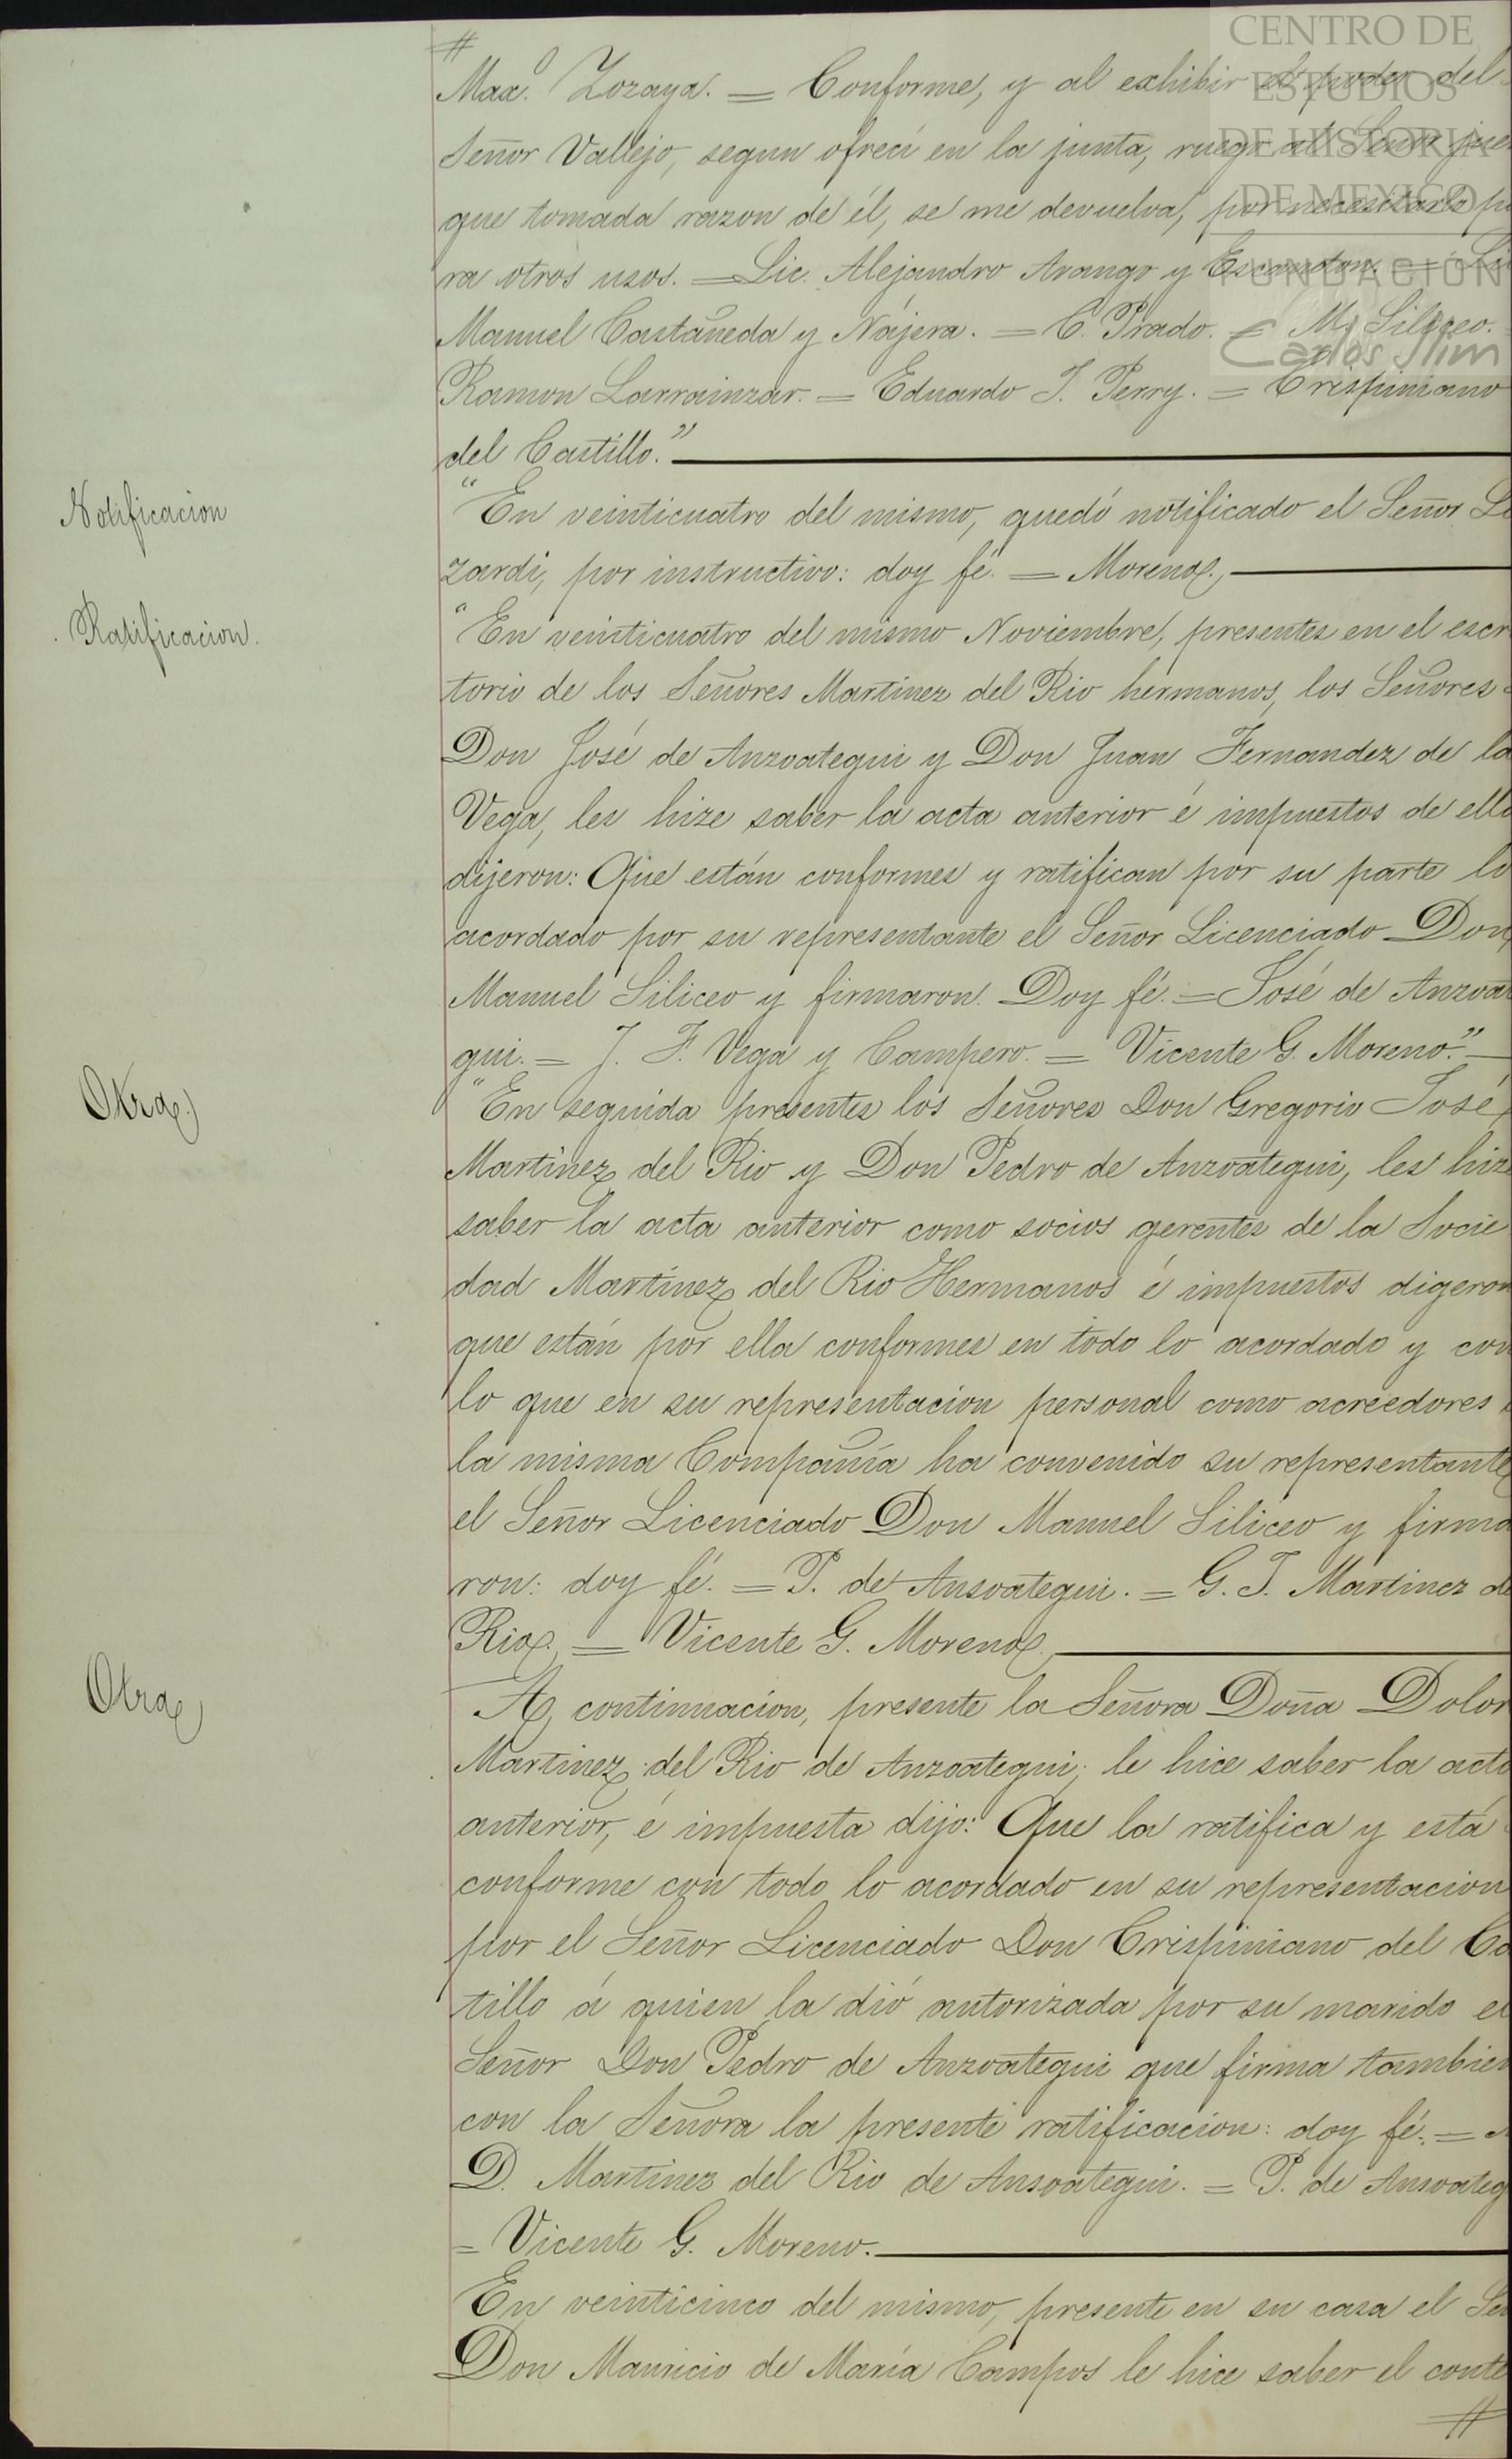 CENTRO DE
ESTUDIOS
DE HISTORIA
DE MEXICO
FUNDACIÓN
Carlos Slim
#
Maa.º Zozaya. = Conforme, y al exhibir el poder del
Señor Vallejo, segun ofreci en la junta, ruego al Señor jue
que tomada razon de él, se me devuelva, por necesitarlo pa
ra otros usos. = Lic. Alejandro Arango y Escandon. = Lic
Manuel Castañeda y Nájera. = C. Prado. = M. Siliceo.
Ramon Larrainzar. = Eduardo J. Perry. = Crispiniano
del Castillo."
Notificacion
"En veinticuatro del mismo, quedó notificado el Señor Li
zardi, por instructivo: doy fé. = Moreno.
Ratificacion.
"En veinticuatro del mismo Noviembre, presentes en el escri
torio de los Señores Martinez del Rio hermanos, los Señores
Don José de Anzoategui y Don Juan Fernandez de la
Vega, les hize saber la acta anterior é impuestos de ella
dijeron: Que están conformes y ratifican por su parte lo
acordado por su representante el Señor Licenciado Don
Manuel Siliceo y firmaron. Doy fé. = José de Anzoa
gui. = J. F. Vega y Campero. = Vicente G. Moreno."
Otra.
"En seguida presentes los Señores Don Gregorio José
Martinez del Rio y Don Pedro de Anzoategui, les hize
saber la acta anterior como socios gerentes de la Socie
dad Martínez del Rio Hermanos é impuestos digeron
que están por ella conformes en todo lo acordado y con
lo que en su representacion personal como acreedores
la misma Compañía ha convenido su representante
el Señor Licenciado Don Manuel Siliceo y firma
ron: doy fé. = P. de Ansoategui. = G. J. Martinez de
Rio. = Vicente G. Moreno.
Otra
A continuacion, presente la Señora Doña Dolor
Martinez del Rio de Anzoategui; le hice saber la acta
anterior, é impuesta dijo: Que la ratifica y está
conforme con todo lo acordado en su representacion
por el Señor Licenciado Don Crispiniano del Ca
tillo á quien la dió autorizada por su marido el
Señor Don Pedro de Anzoategui que firma tambien
con la Señora la presente ratificacion: doy fé. =
D. Martinez del Rio de Ansoategui. = P. de Ansoateg
= Vicente G. Moreno.
En veinticinco del mismo, presente en su casa el Se
Don Mauricio de María Campos le hice saber el conte
#